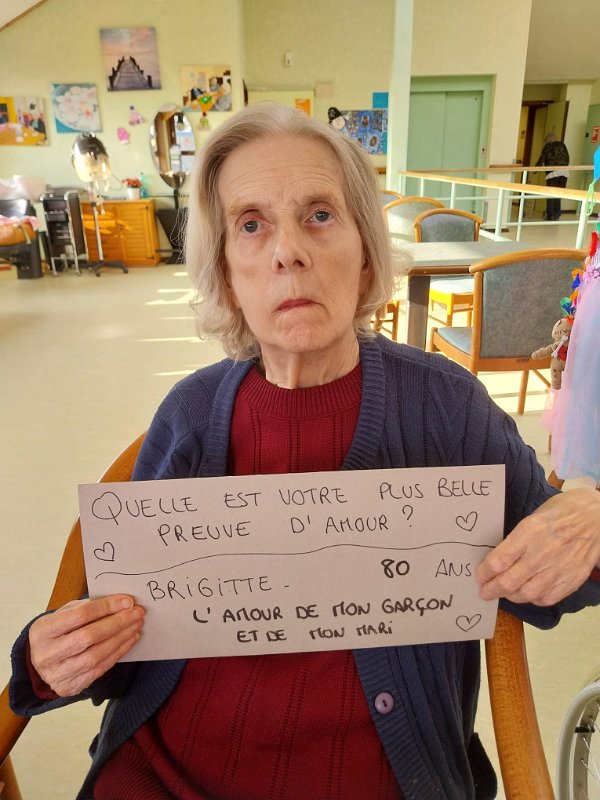 QUELLE EST VOTRE PLUS BELLE
PREUVE D'AMOUR ?
BRIGITTE. 80 ANS
L'AMOUR DE MON GARÇON
ET DE MON MARI